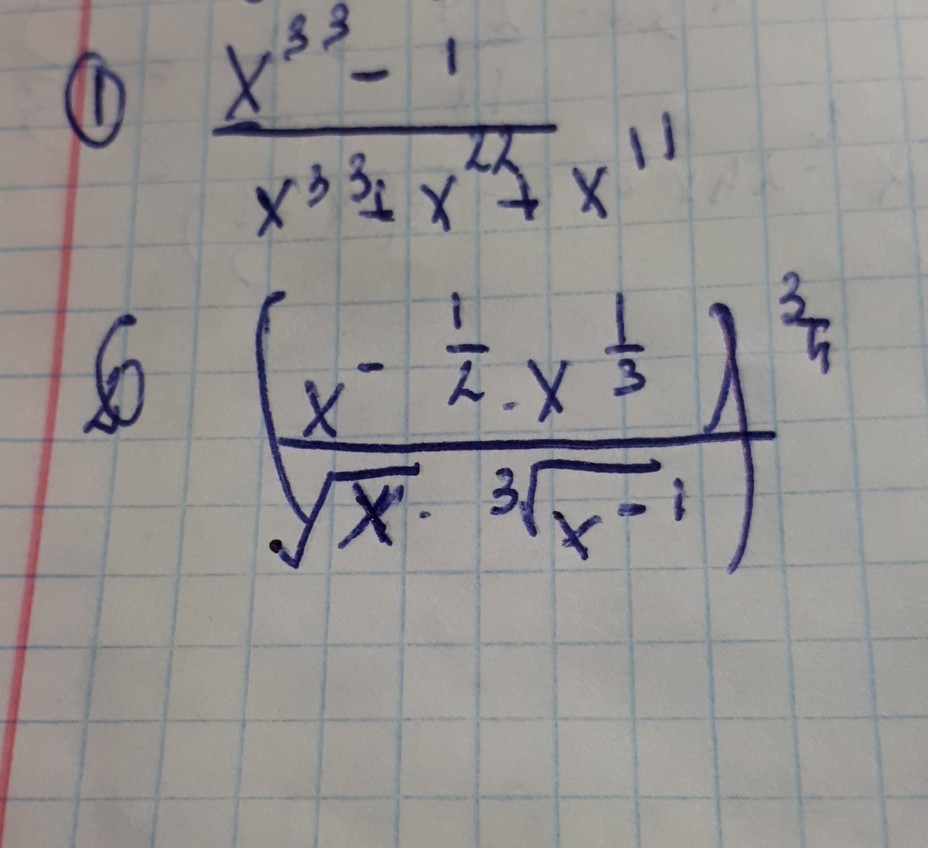 ① x³³ - 1
x³³ + x²² + x¹¹
(x^{-1/2} · x^{1/3})^{3/4}
√x · ³√x⁻¹